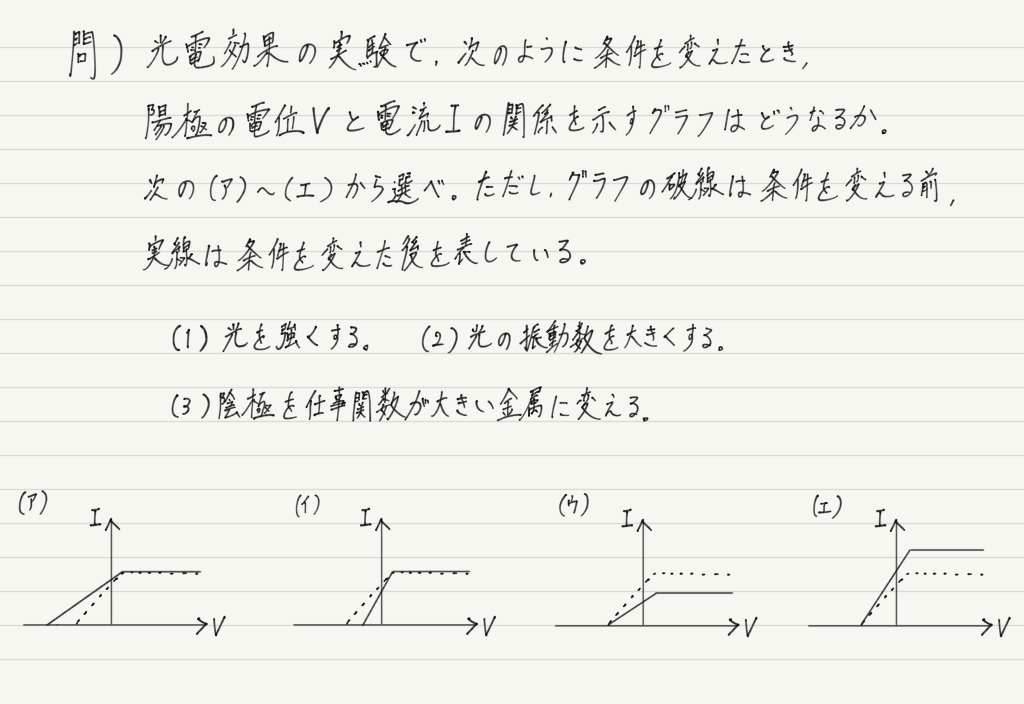 問) 光電効果の実験で, 次のように条件を変えたとき,
陽極の電位Vと電流Iの関係を示すグラフはどうなるか。
次の(ア)~(エ)から選べ。ただし, グラフの破線は条件を変える前,
実線は条件を変えた後を表している。
(1) 光を強くする。 (2) 光の振動数を大きくする。
(3) 陰極を仕事関数が大きい金属に変える。
(ア) (イ) (ウ) (エ)
I I I I
V V V V